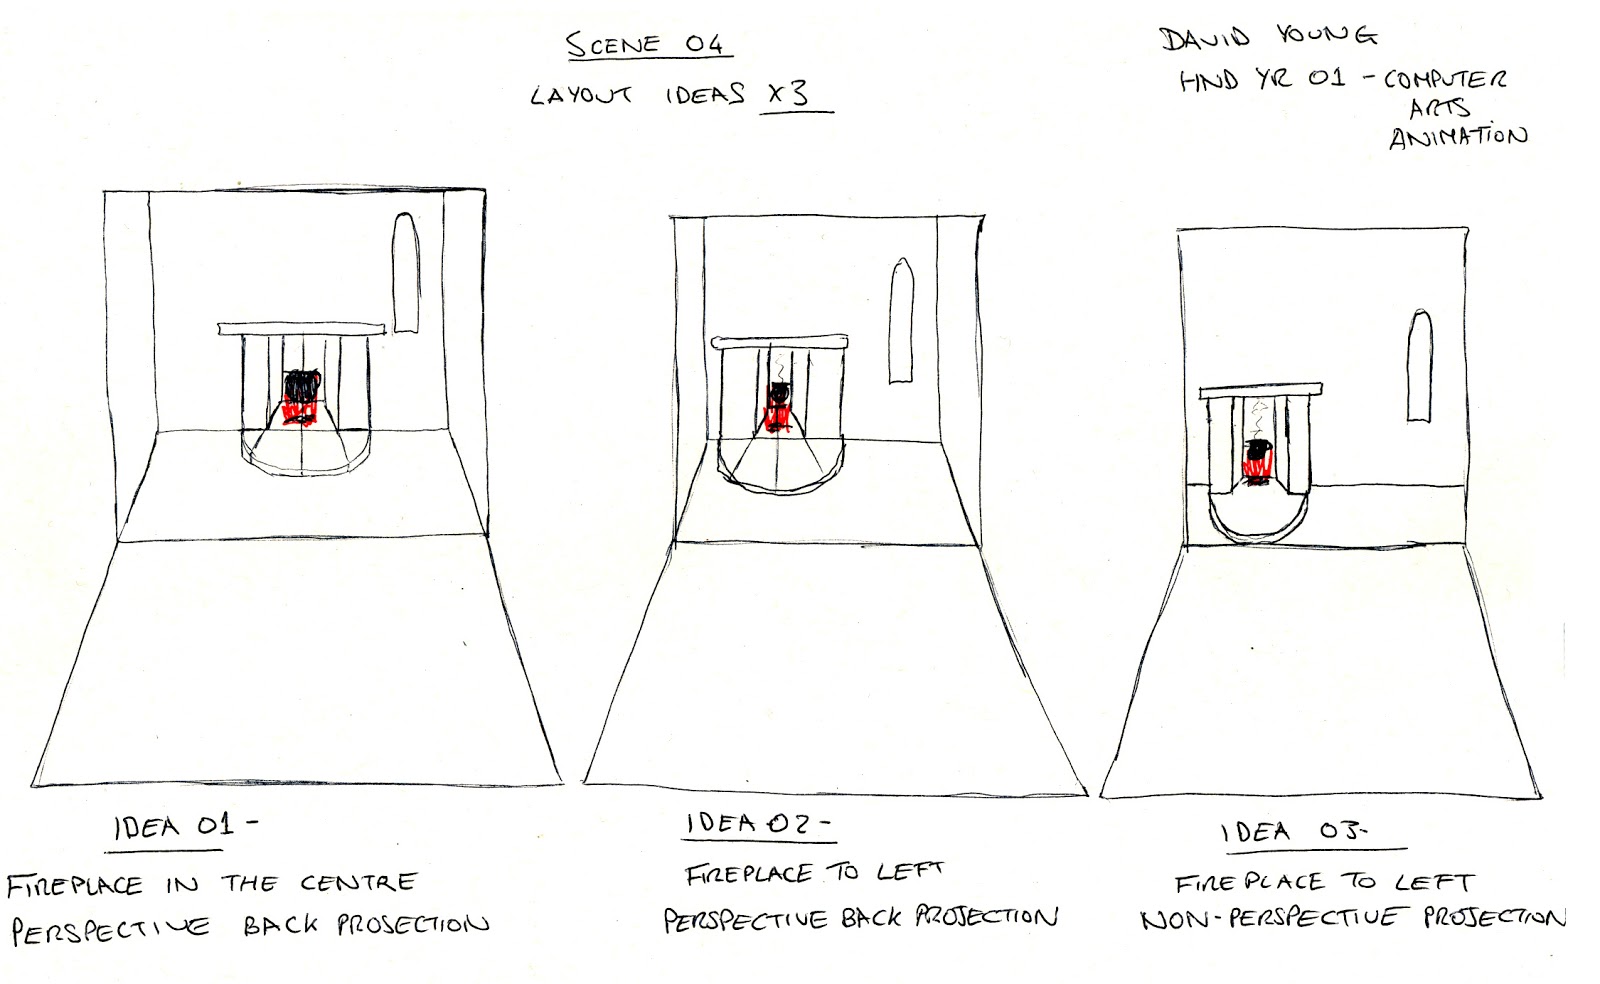 SCENE 04
LAYOUT IDEAS X3
DAVID YOUNG
HND YR 01 - COMPUTER
ARTS
ANIMATION
IDEA 01 -
FIREPLACE IN THE CENTRE
PERSPECTIVE BACK PROJECTION
IDEA 02 -
FIREPLACE TO LEFT
PERSPECTIVE BACK PROJECTION
IDEA 03 -
FIREPLACE TO LEFT
NON-PERSPECTIVE PROJECTION